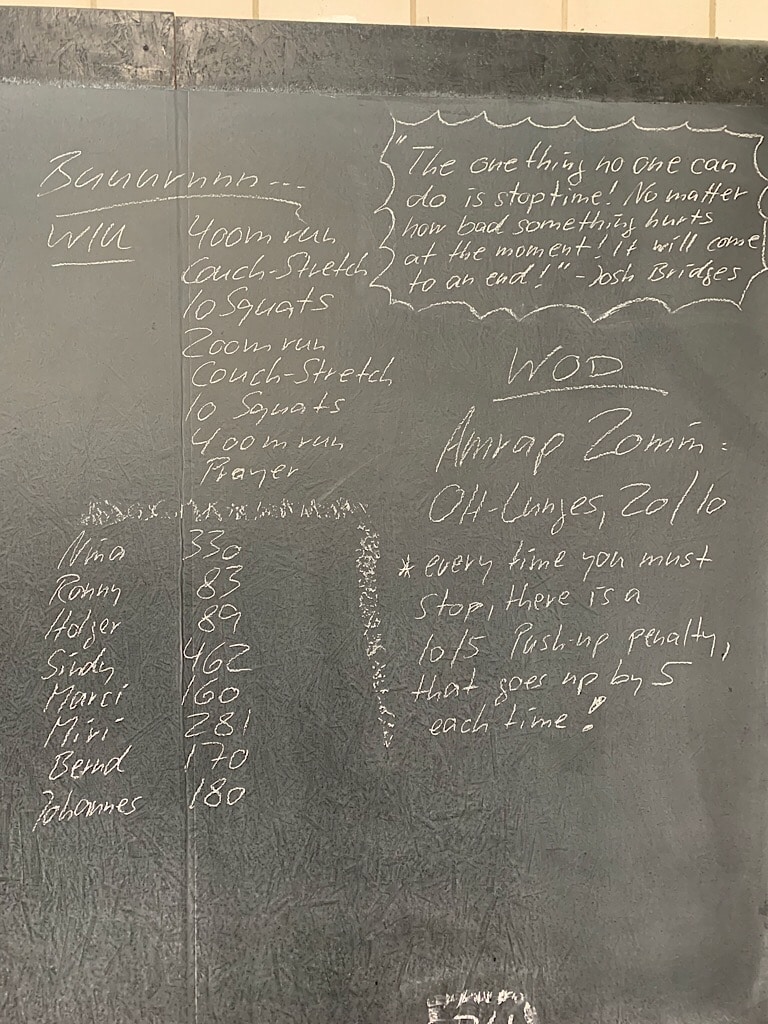 Buuurnnn...
WU
400m run
Couch-Stretch
10 Squats
200m run
Couch-Stretch
10 Squats
400m run
Prayer
"The one thing no one can
do is stop time! No matter
how bad something hurts
at the moment! it will come
to an end!" - Josh Bridges
WOD
Amrap 20min:
OH-Lunges, 20/10
* every time you must
stop, there is a
10/5 Push-up penalty,
that goes up by 5
each time!
Nina 330
Ronny 83
Holger 89
Sindy 462
Marci 160
Miri 281
Bernd 170
Johannes 180